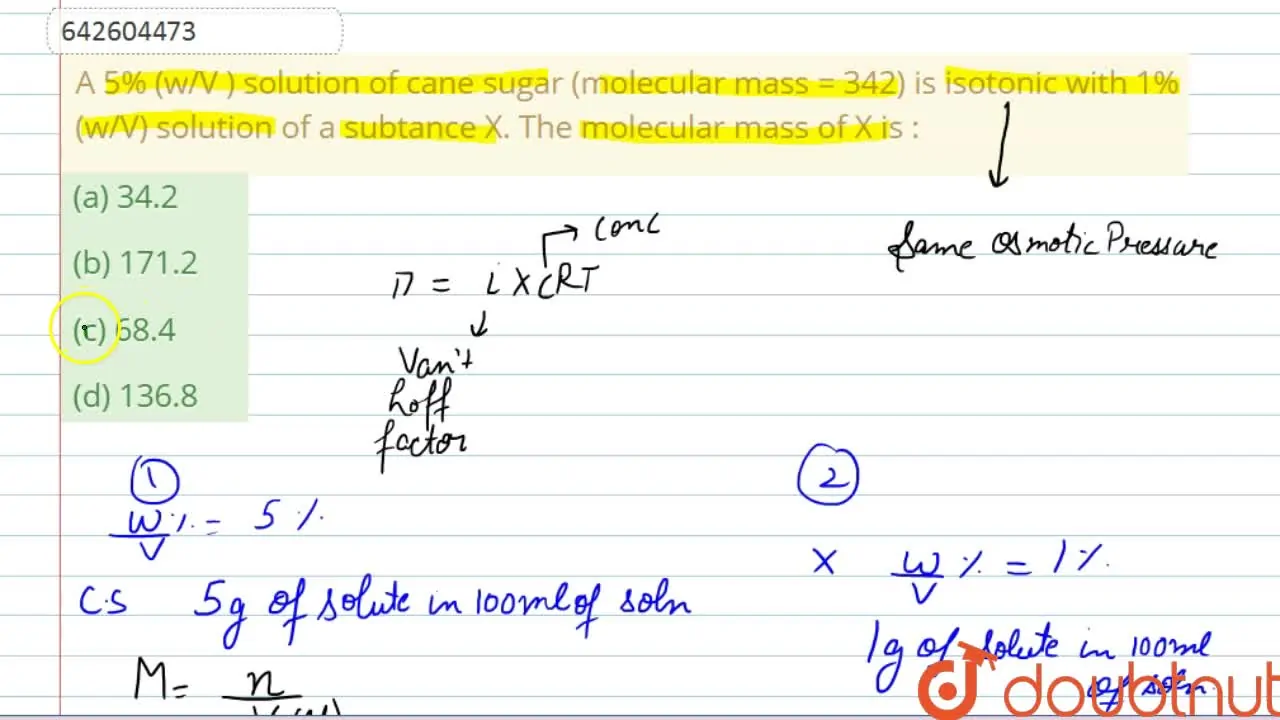 642604473
A 5% (w/V ) solution of cane sugar (molecular mass = 342) is isotonic with 1%
(w/V) solution of a subtance X. The molecular mass of X is :
(a) 34.2
(b) 171.2
(c) 68.4
(d) 136.8
conc
π = i X CRT
Van't
hoff
factor
Same Osmotic Pressure
1
W/V % = 5 %
C.S 5g of solute in 100ml of soln
M = n
2
X W/V % = 1%
1g of solute in 100ml
of soln
doubtnut